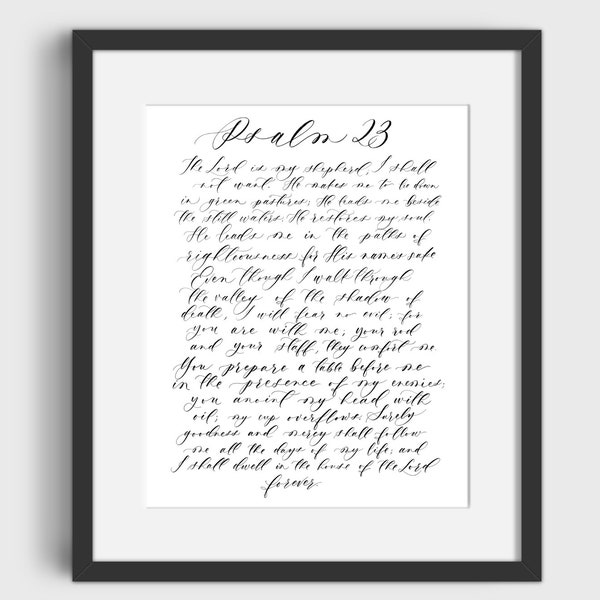 Psalm 23
The Lord is my shepherd; I shall
not want. He makes me to lie down
in green pastures; He leads me beside
the still waters; He restores my soul.
He leads me in the paths of
righteousness for His names sake
Even though I walk through
the valley of the shadow of
death, I will fear no evil; for
you are with me; your rod
and your staff, they comfort me.
You prepare a table before me
in the presence of my enemies;
you anoint my head with
oil; my cup overflows. Surely
goodness and mercy shall follow
me all the days of my life; and
I shall dwell in the house of the Lord
forever.